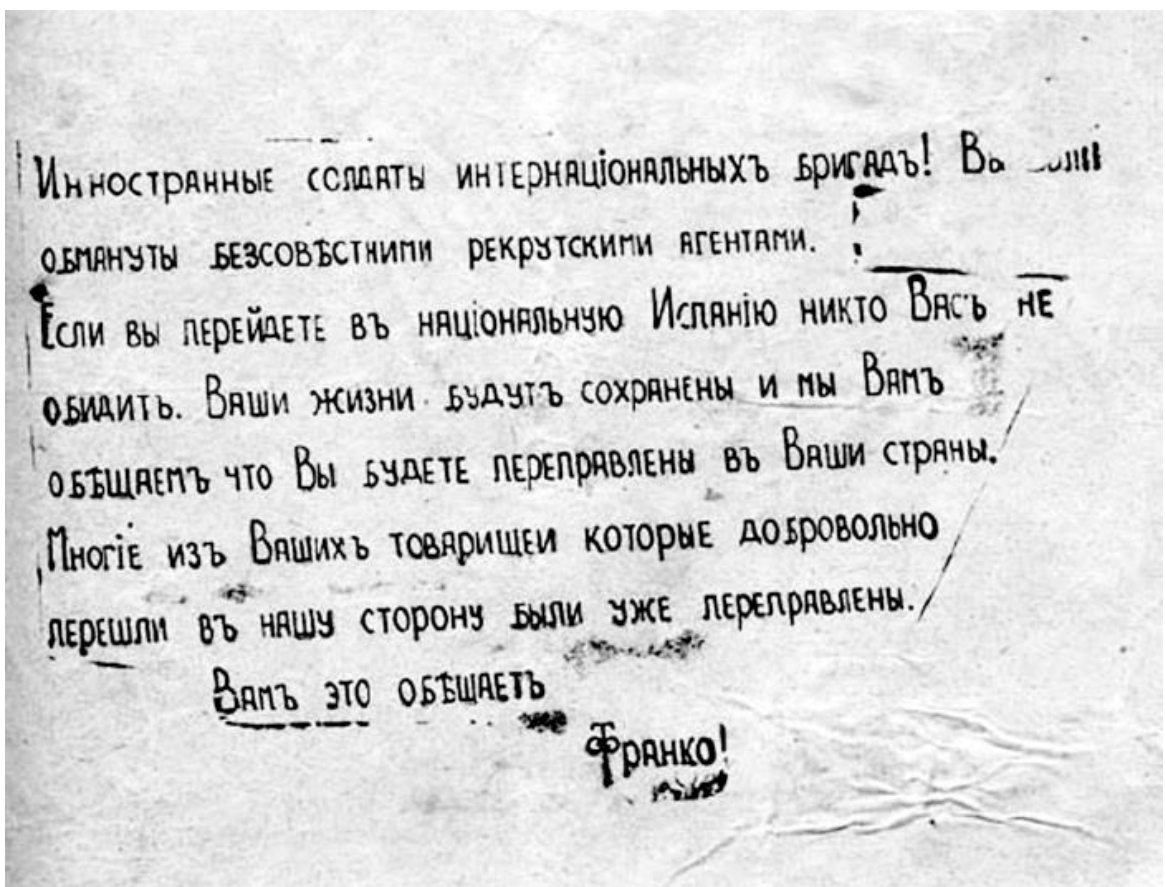 Инностранные солдаты интернаціональныхъ бригадъ!
обмануты безсовѣстними рекрутскими агентами.
Если вы перейдете въ національную Испанію никто Васъ не
обидитъ. Ваши жизни будутъ сохранены и мы Вамъ
обѣщаемъ что Вы будете переправлены въ Ваши страны.
Многіе изъ Вашихъ товарищеи которые добровольно
перешли въ нашу сторону были уже переправлены.
Вамъ это обѣщаетъ
Франко!